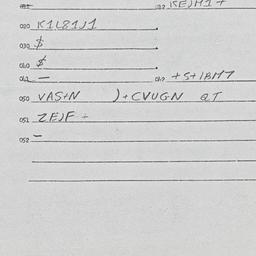 KEJM1+
020 K1L81J1.
030 $.
040 $.
041 — 049 +S+1BM7
050 VAS+N )+CVUGN QT
051 ZEJF +
052 —